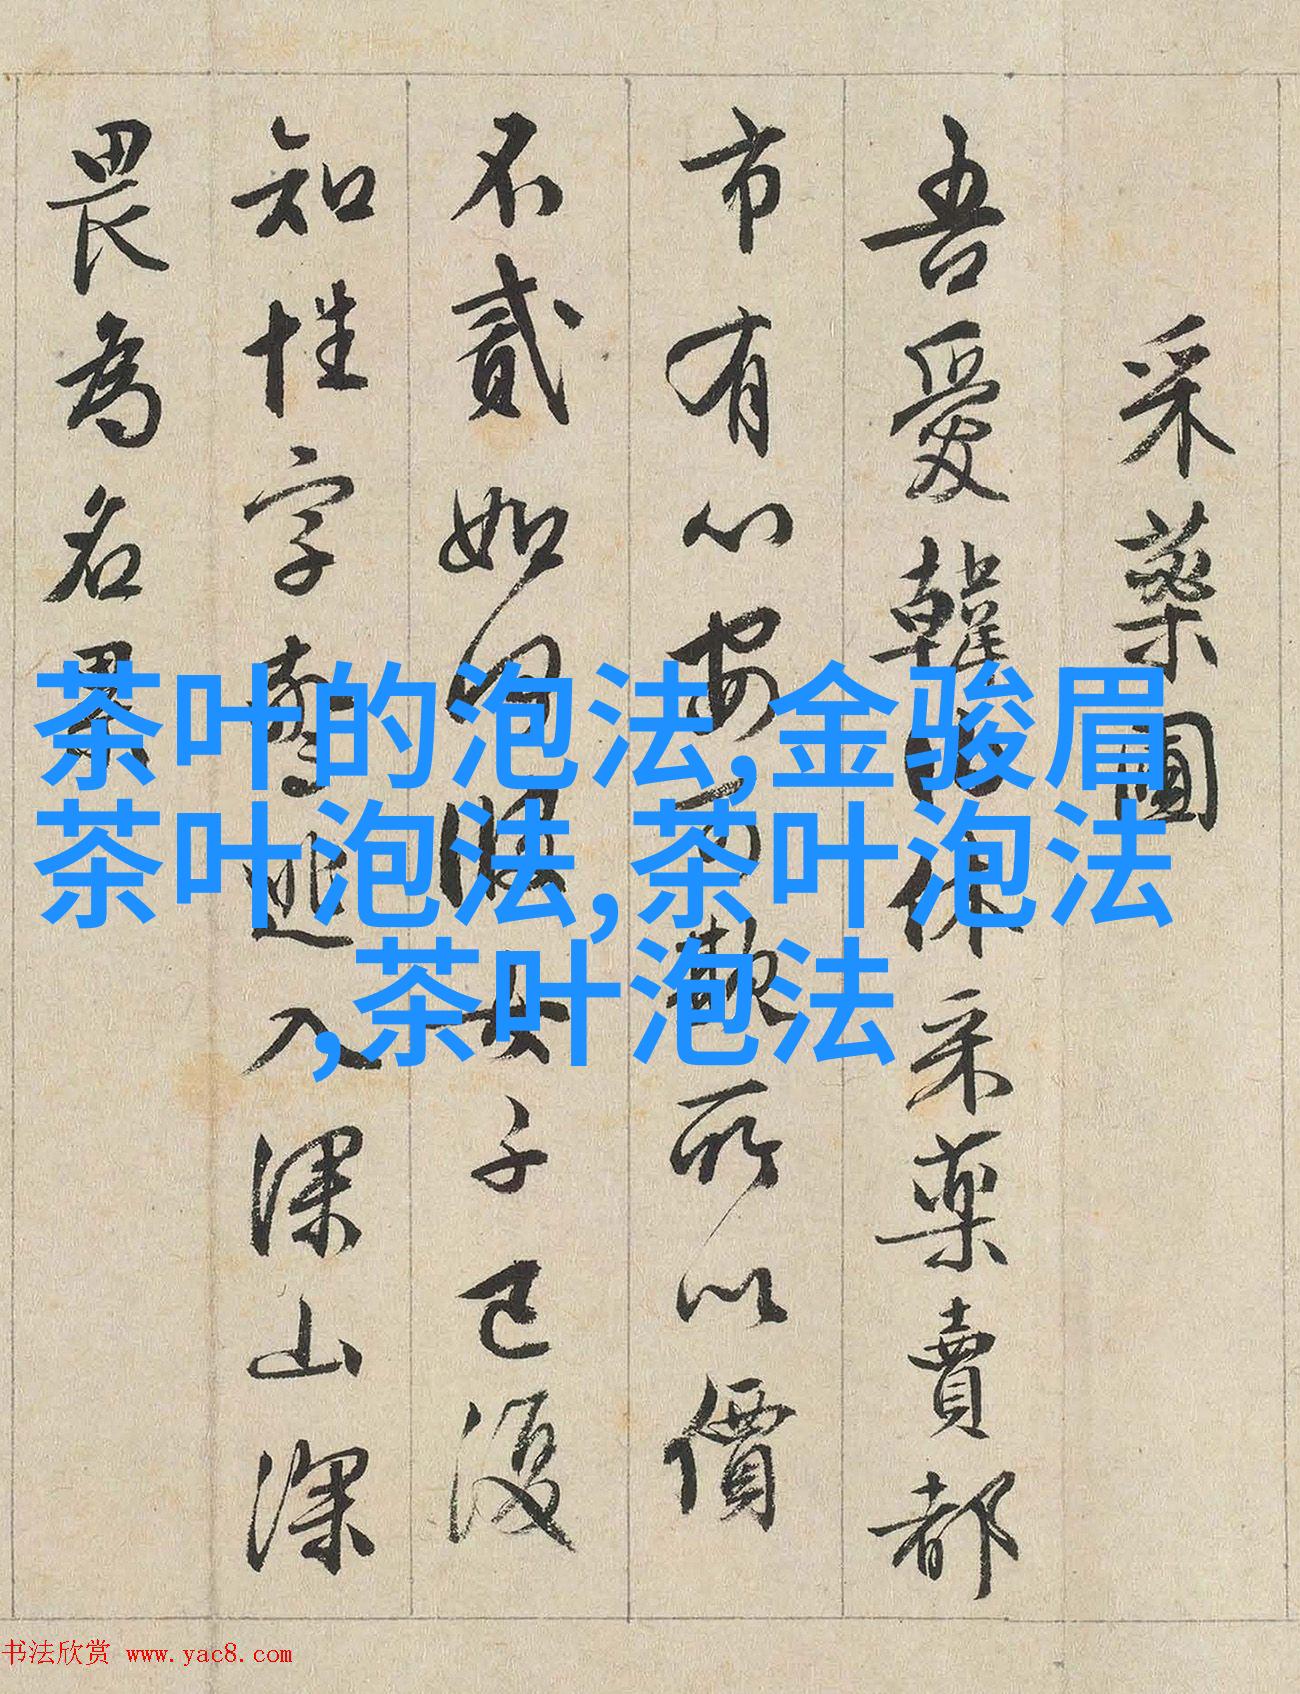 采藥圖
吾愛韓伯休采藥賣都
市有心安可欺所以價
不貳如何暇女子已復
知性字驚逃入深山深
畏為名累
茶叶的泡法,金骏眉
茶叶泡法,茶叶泡法
,茶叶泡法
书法欣赏 www.yac8.com